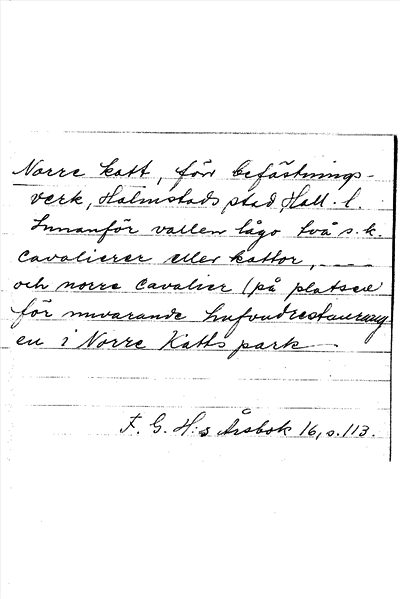 Norre katt, förv befästnings-
verk, Halmstads stad, Hall. l.
Innanför vallen lågo två s.k.
cavalierer eller kattor, - - - -
och norre cavalier (på platsen
för nuvarande hufvudrestaurang
en i Norre Katts park -
F. G. H:s Årsbok 16, s. 113.